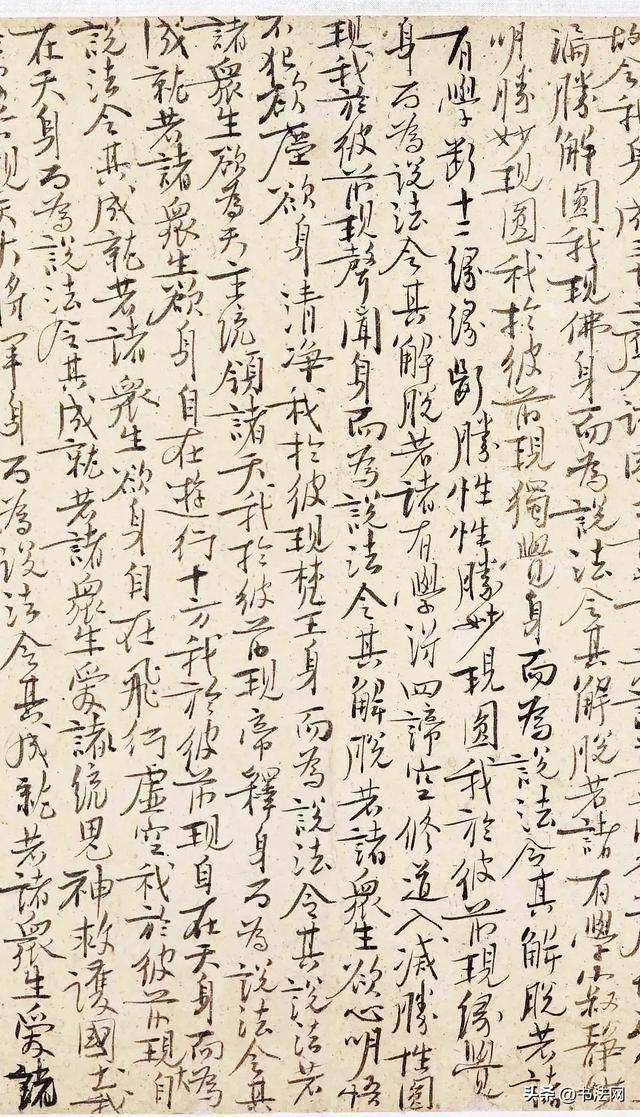 故令我身成三十二應入諸國土
漏勝解圓我現佛身而為說法令其解脫若諸有學寂靜
明勝妙現圓我於彼前現獨覺身而為說法令其解脫若諸
有學斷十二緣緣斷勝性性勝妙現圓我於彼前現緣覺
身而為說法令其解脫若諸有學得四諦空修道入滅勝性圓
現我於彼前現聲聞身而為說法令其解脫若諸眾生欲心明悟
不犯欲塵欲身清淨我於彼現梵王身而為說法令其說法若
諸眾生欲為天主統領諸天我於彼前現帝釋身而為說法令其
成就若諸眾生欲身自在遊行十方我於彼前現自在天身而為
說法令其成就若諸眾生欲身自在飛行虛空我於彼前現大自
在天身而為說法令其成就若諸眾生愛諸統鬼神救護國我
前現天大將軍身而為說法令其成就若諸眾生愛諸
头条 @书法网